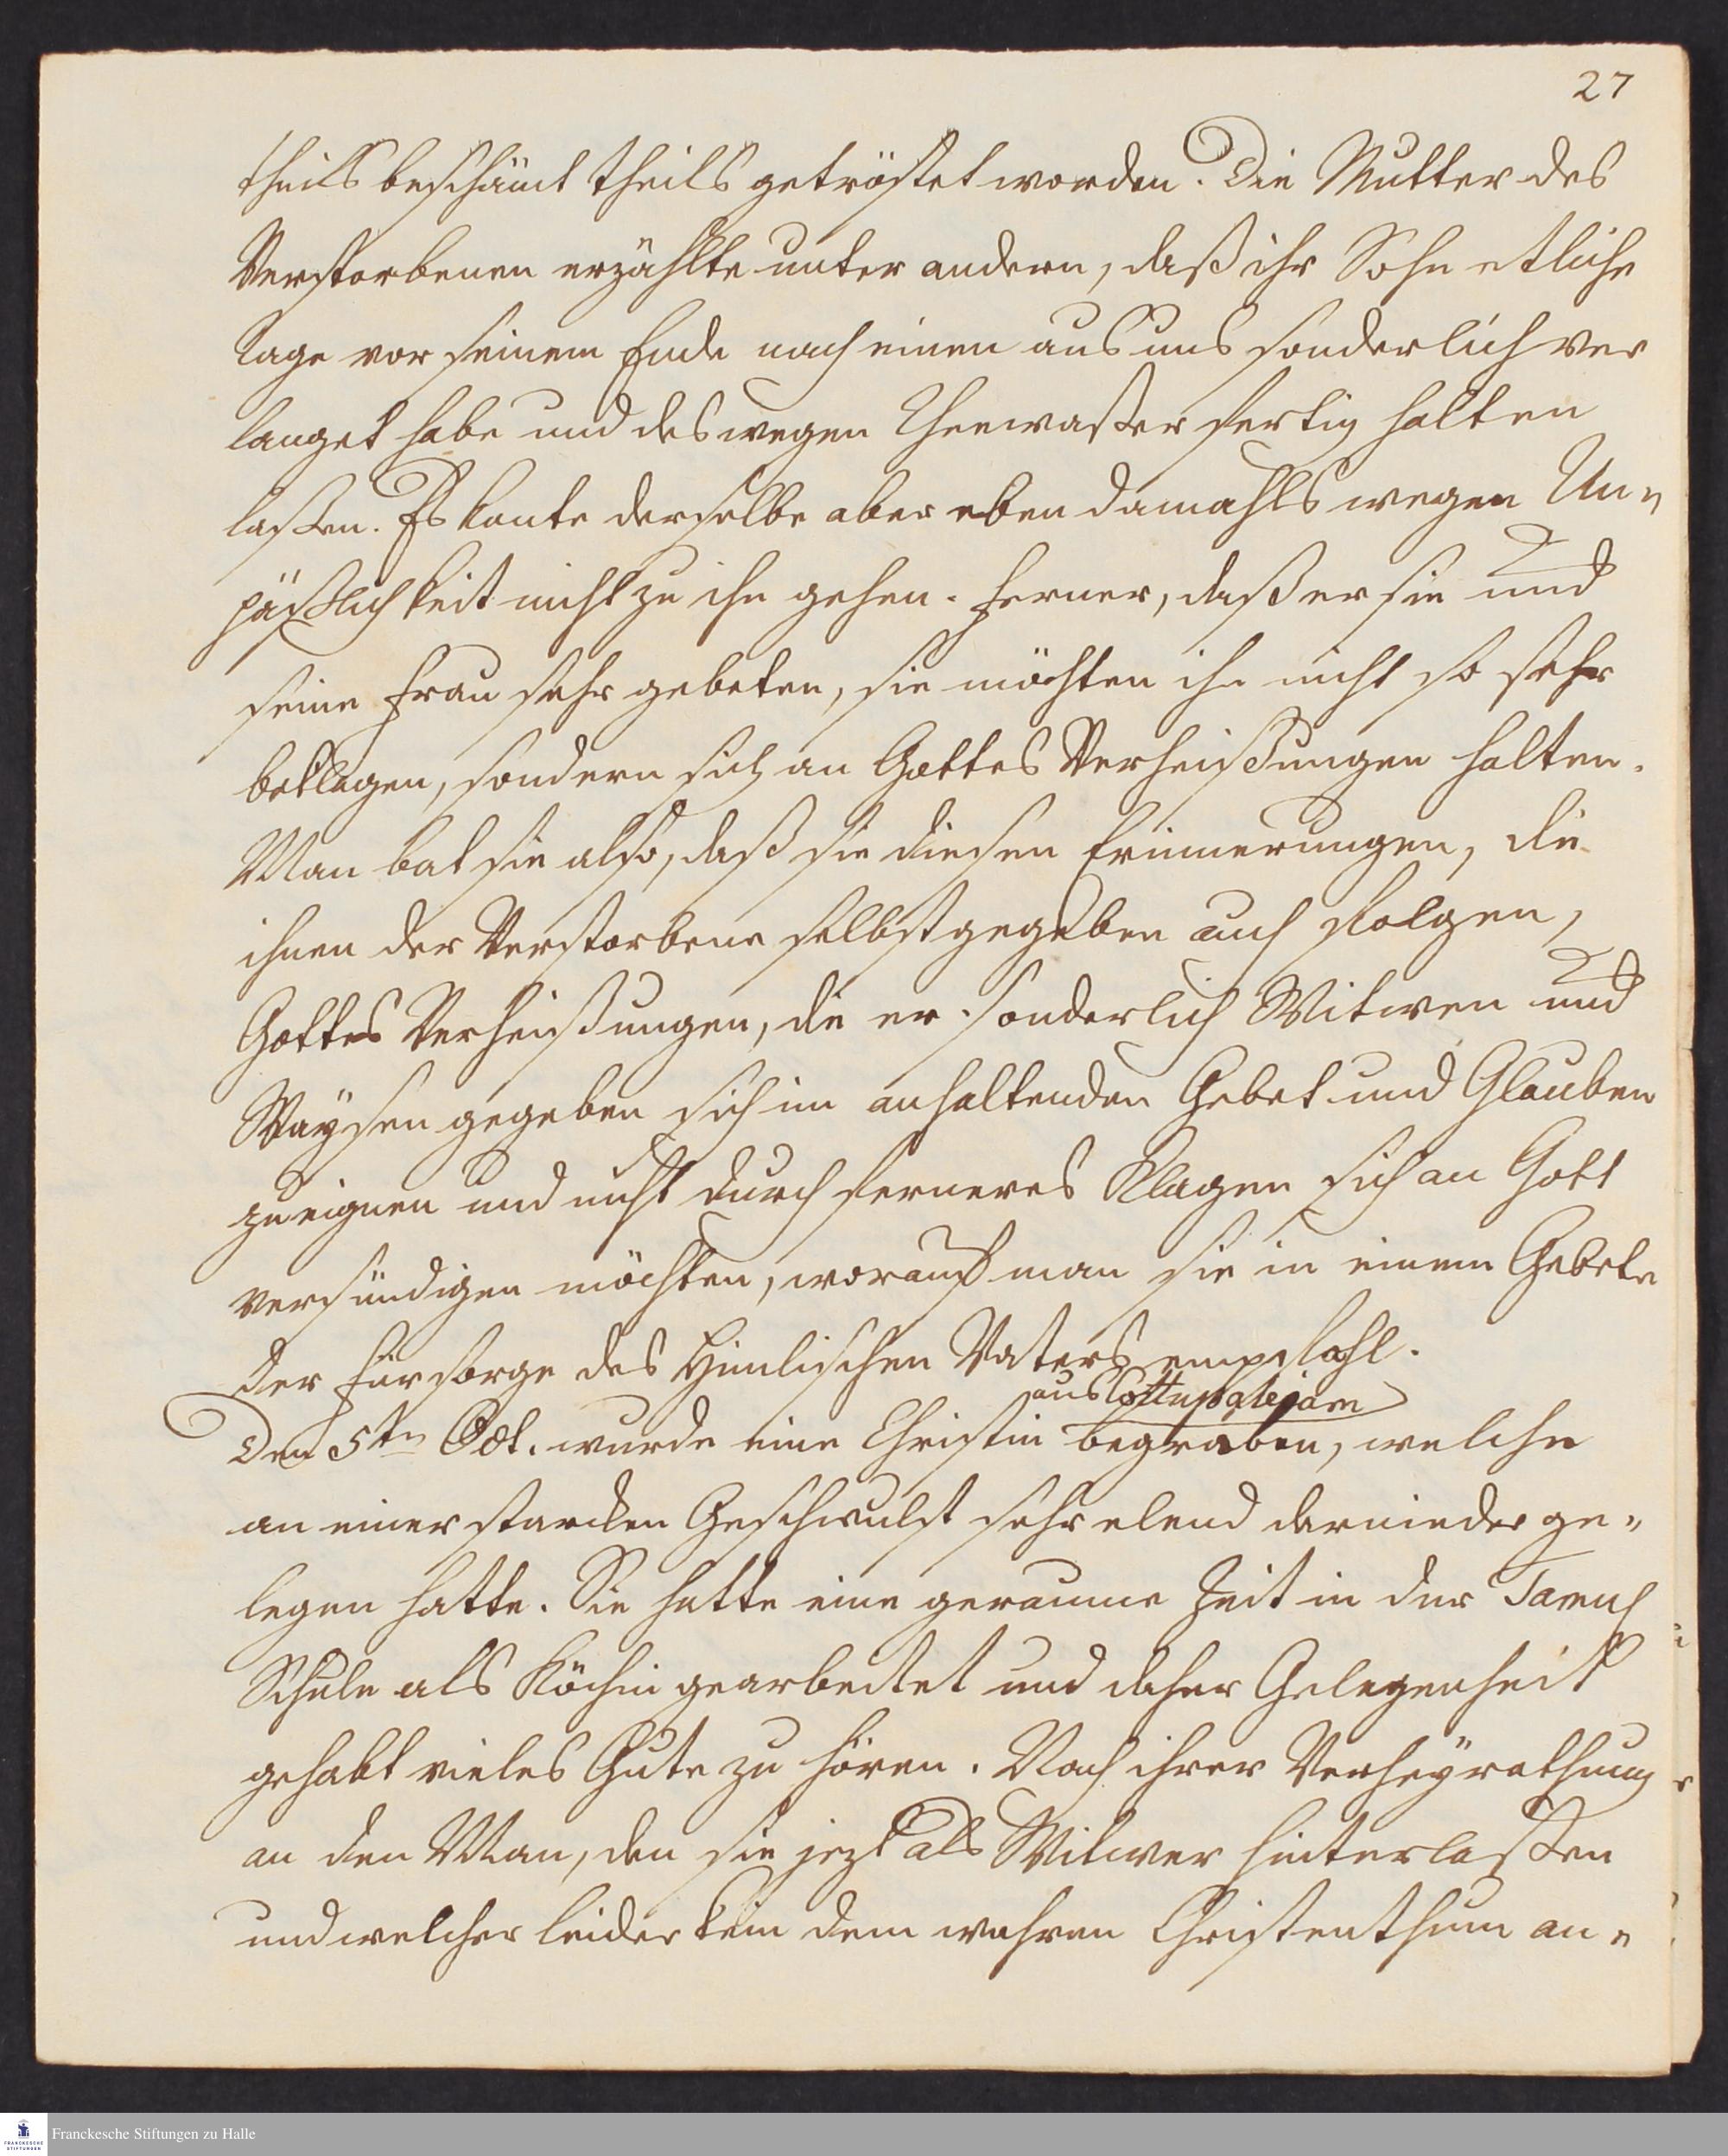 27
theils beschämt theils getröstet worden. Die Mutter des
Verstorbenen erzählte unter andern, daß ihr Sohn etliche
Tage vor seinem Ende nach einen aus uns sonderlich ver
langet habe und deswegen Theewaßer fertig halten
laßen. Es konte derselbe aber eben damahls wegen Un„
päßlichkeit nicht zu ihn gehen. Ferner, daß er sie und
seine Frau sehr gebeten, sie möchten ihn nicht so sehr
beklagen, sondern sich an Gottes Verheißungen halten.
Man bat sie also, daß sie diesen Erinnerungen, die
ihnen der Verstorbene selbst gegeben auch folgen,
Gottes Verheißungen, die er sonderlich Witwen und
Waÿsen gegeben sich im anhaltenden Gebet und Glauben
zueignen und nicht durch ferneres Klagen sich an Gott
versündigen möchten, worauf man sie in einem Gebete
der Fürsorge des Himlischen Vaters empfohl.
aus Cottupaleijam
Den 5ten Oct. wurde eine Christin begraben, welche
an einer starcken Geschwulst sehr elend darnieder ge„
legen hatte. Sie hatte eine geraume Zeit in der Tamul
Schule als Köchin gearbeitet und daher Gelegenheit
gehabt vieles Gute zu hören. Nach ihrer Verheÿrathung
an den Man, den sie jezt als Witwer hinterlaßen
und welcher leider kein dem wahren Christenthum an„
Franckesche Stiftungen zu Halle
FRANCKESCHE
STIFTUNGEN